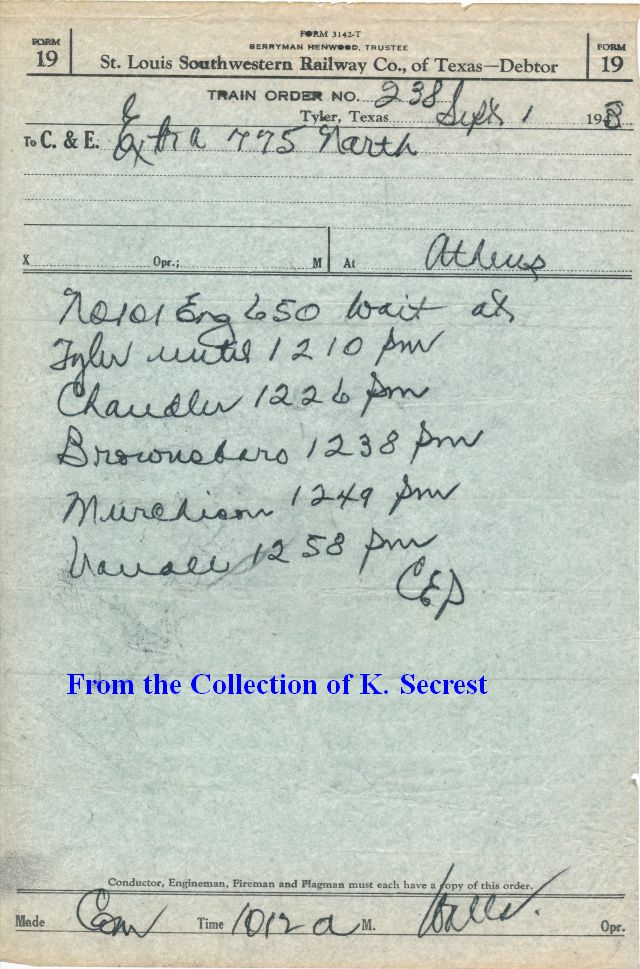 FORM 3142-T
FORM 19
BERRYMAN HENWOOD, TRUSTEE
FORM 19
St. Louis Southwestern Railway Co., of Texas—Debtor
TRAIN ORDER NO. 238
Tyler, Texas Sept 1 1948
To C. & E. Extra 775 North
X Opr.; M At Athens
No 101 Eng 650 wait at
Tyler until 1210 pm
Chandler 1226 pm
Brownsboro 1238 pm
Murchison 1249 pm
1258 pm
CEP
From the Collection of K. Secrest
Conductor, Engineman, Fireman and Flagman must each have a copy of this order.
Made Com Time 1012 a M. Opr.